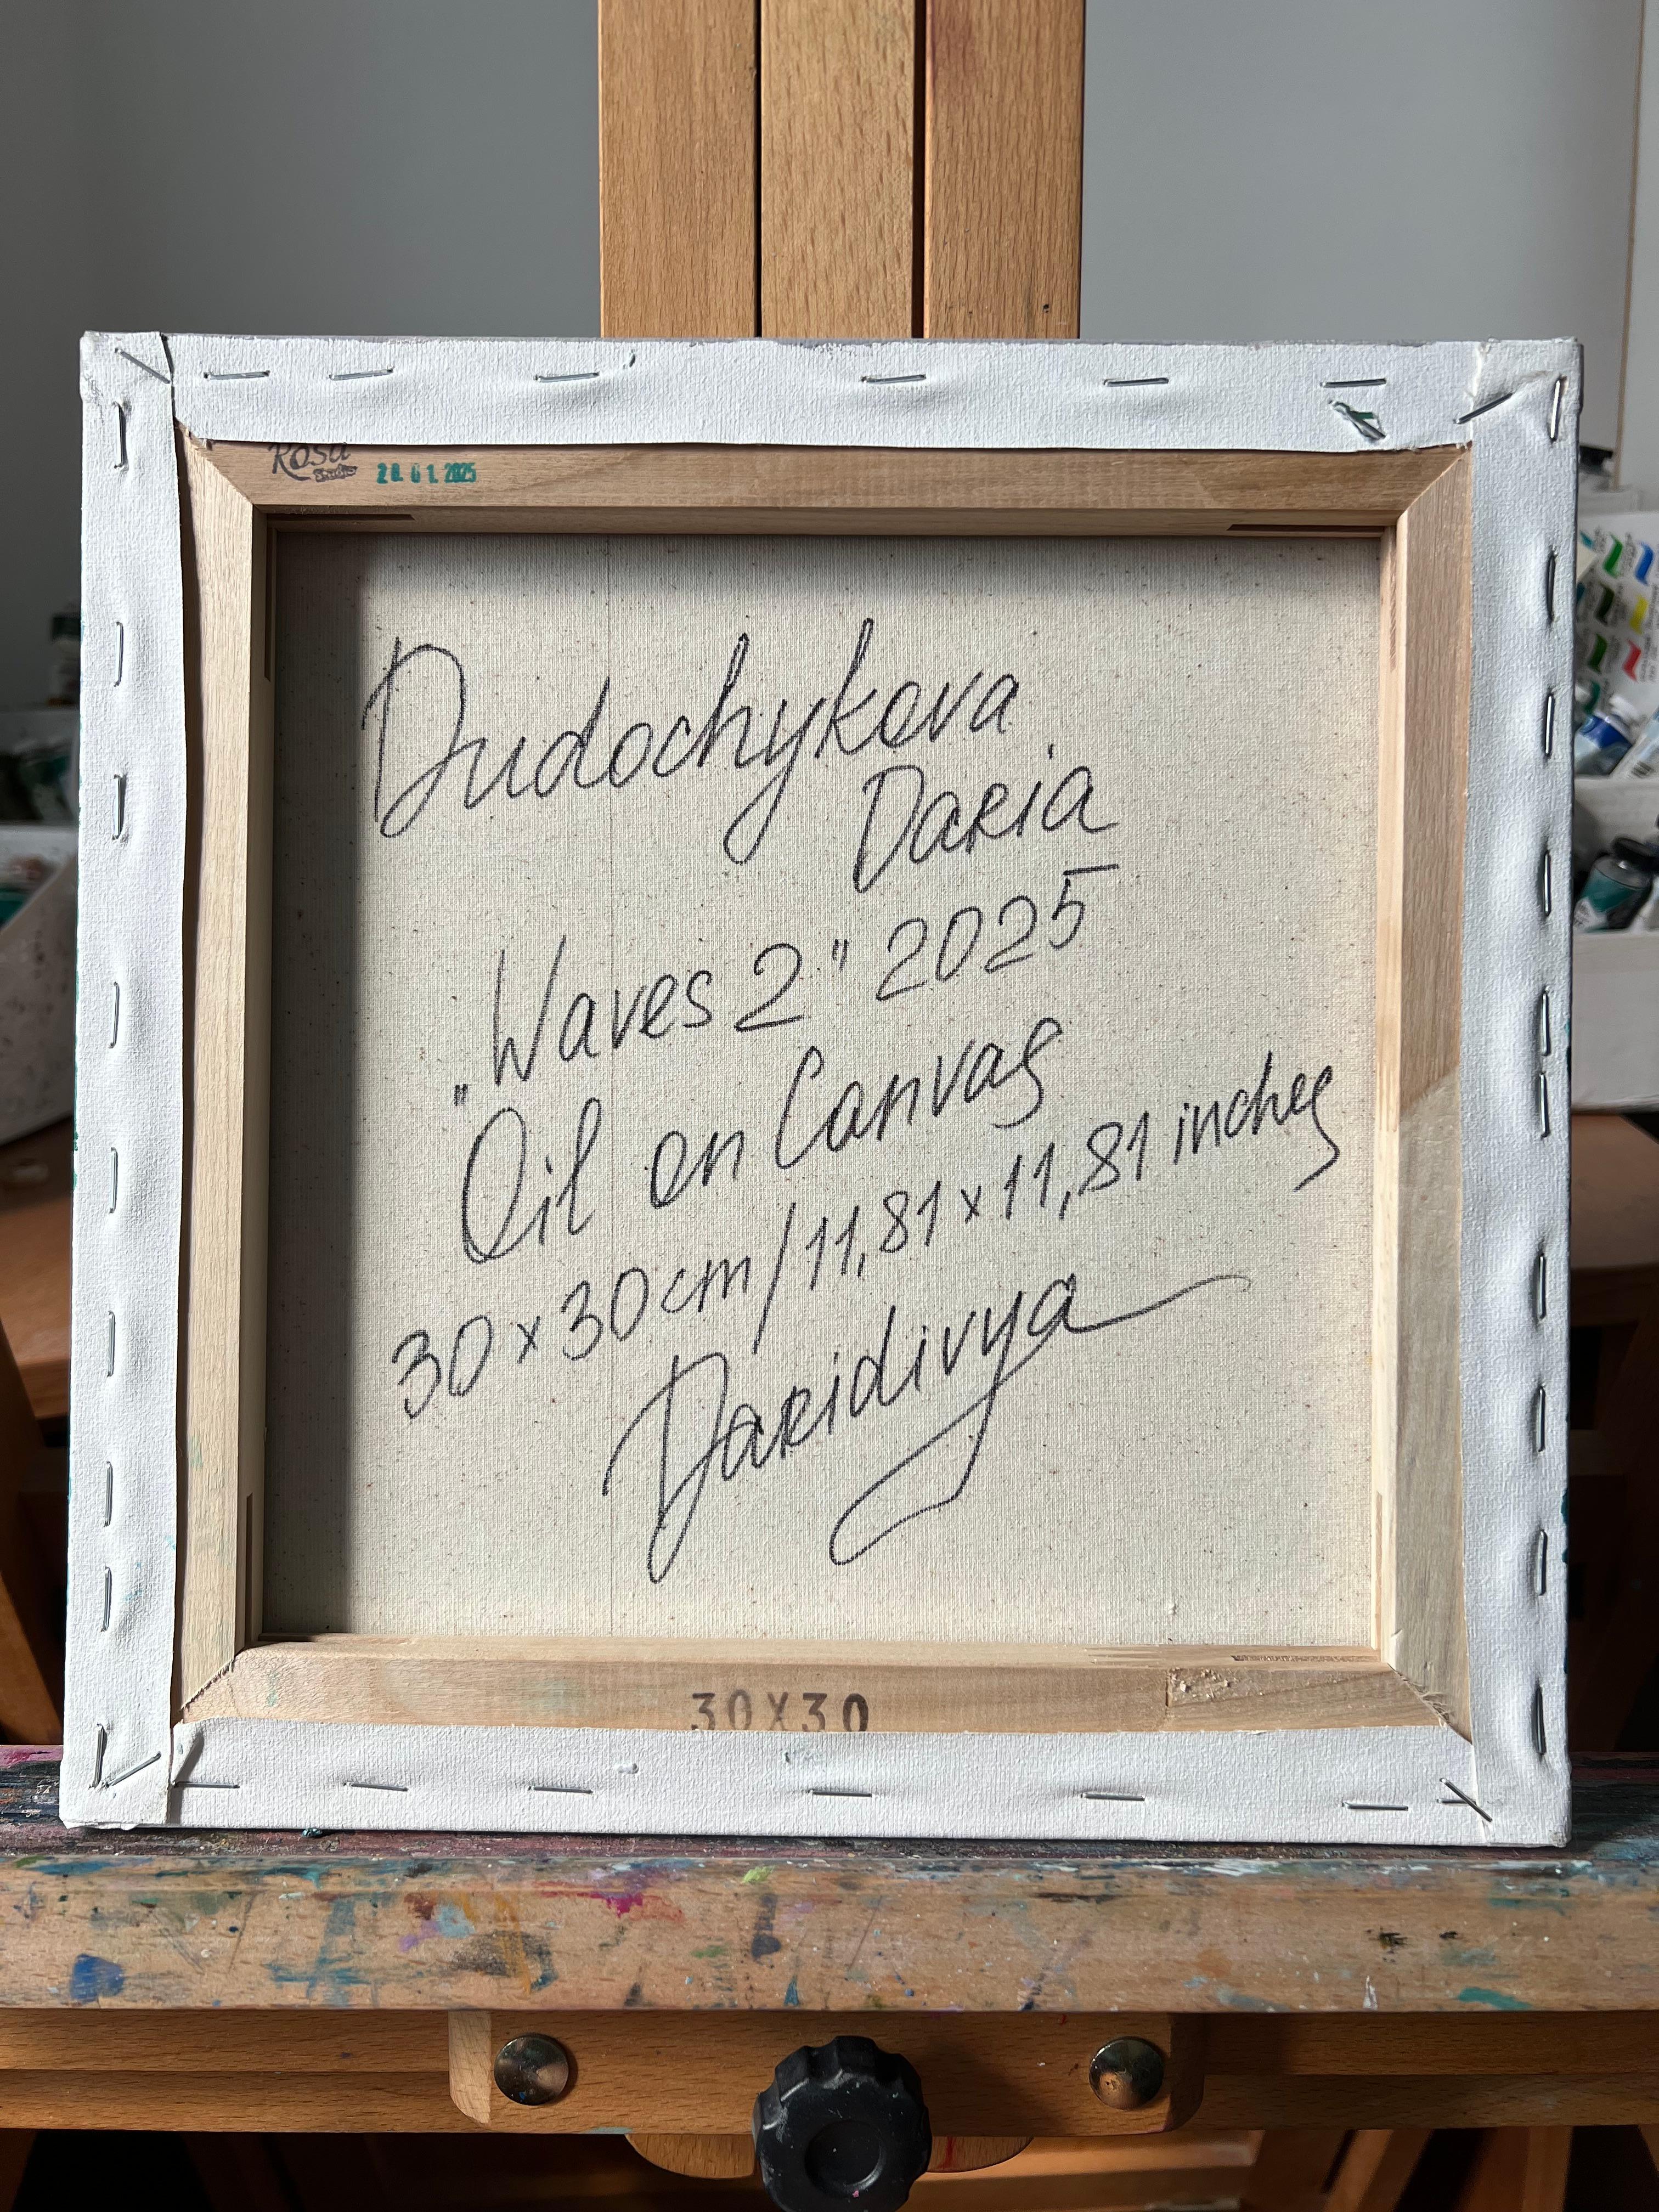 Rosa
Studio
28.01.2025
Dudochykova
Daria
"Waves 2" 2025
Oil on Canvas
30x30cm/11,81x11,81 inches
Daridivya
30X30